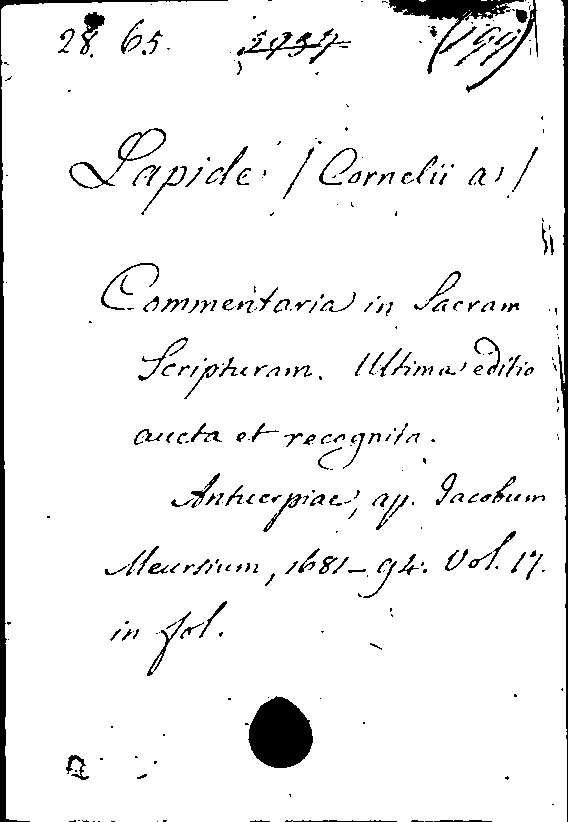 28. 65. 2937 (199)
Lapide / Cornelii a /
Commentaria in Sacram
Scripturam. Ultima editio
aucta et recognita.
Antuerpiae, ap. Jacobum
Meursium, 1681–94. Vol. 17.
in fol.